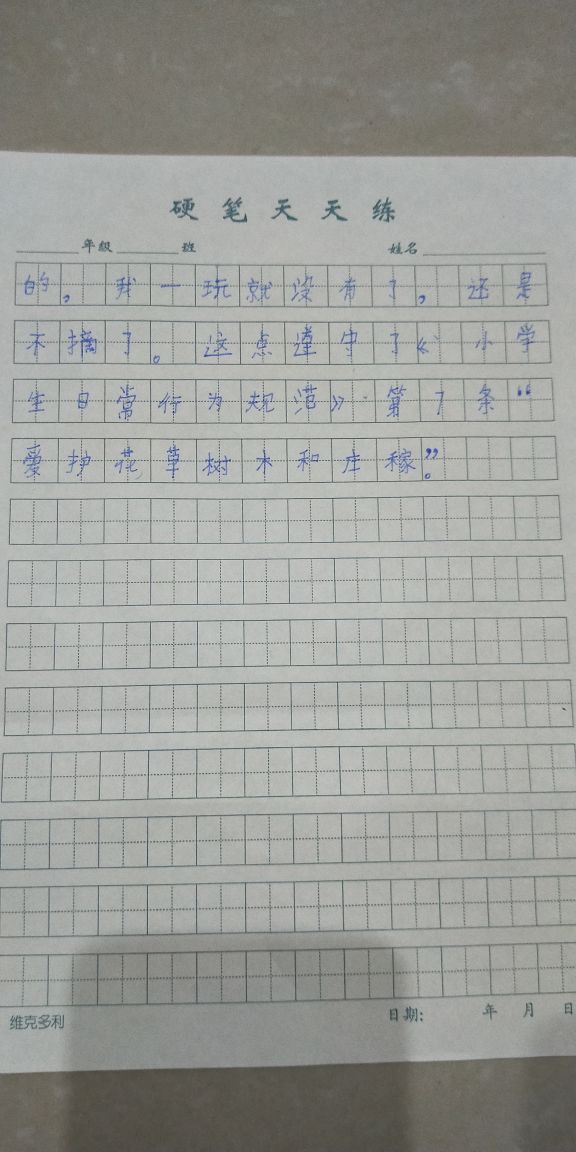 硬笔天天练
年级 班 姓名
的。我一玩就没有了。还是
不摘了。这点遵守了《小学
生日常行为规范》第7条“
爱护花草树木和庄稼”。
维克多利 日期: 年 月 日